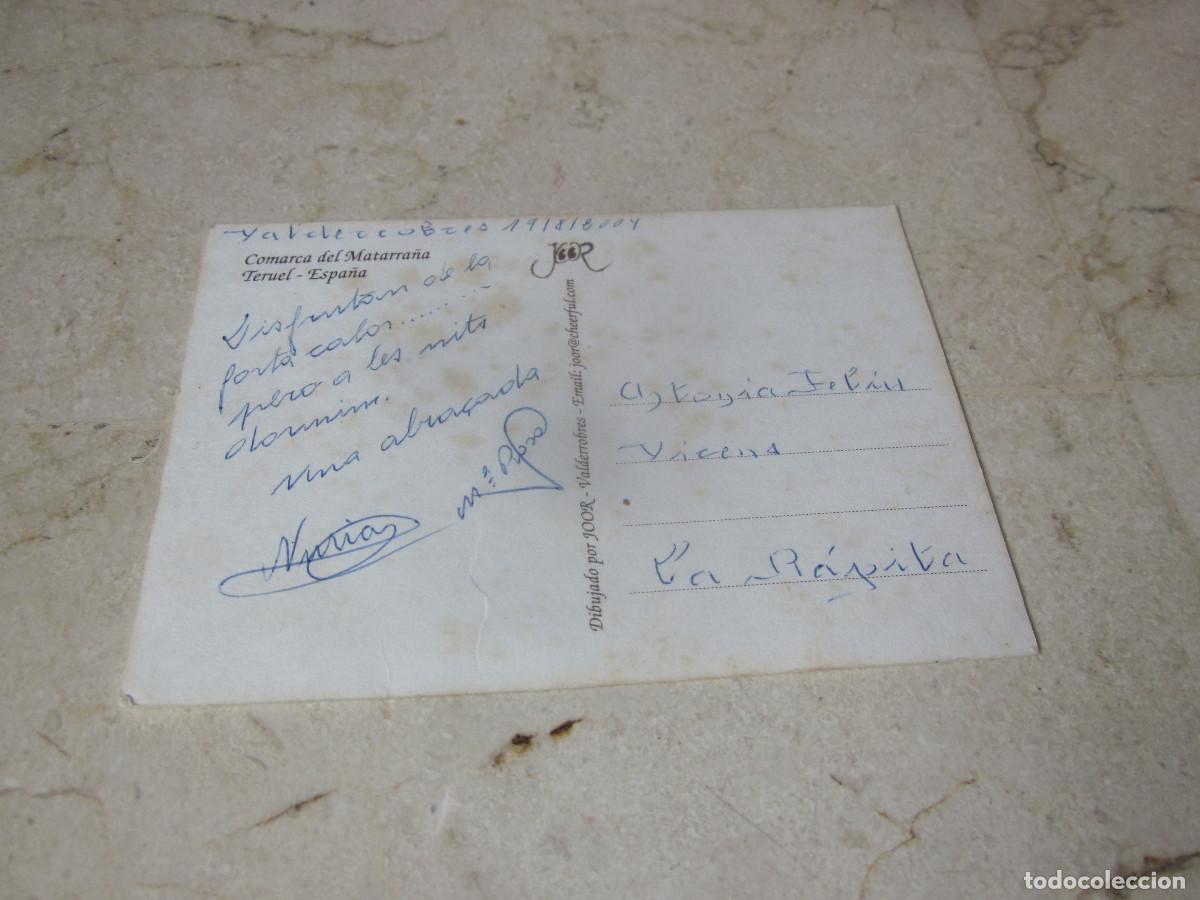 Valderrobres 19/8/2004
Comarca del Matarraña
Teruel - España
JOOR
Disfrutan de la
forta calor........
pero a les nits
dormim.
Una abraçada
Nuria
Mª Rosa
Dibujado por JOOR - Valderrobres - Email: joor@cheerful.com
Antonia Feliu
Vicens
La Ràpita
todocoleccion